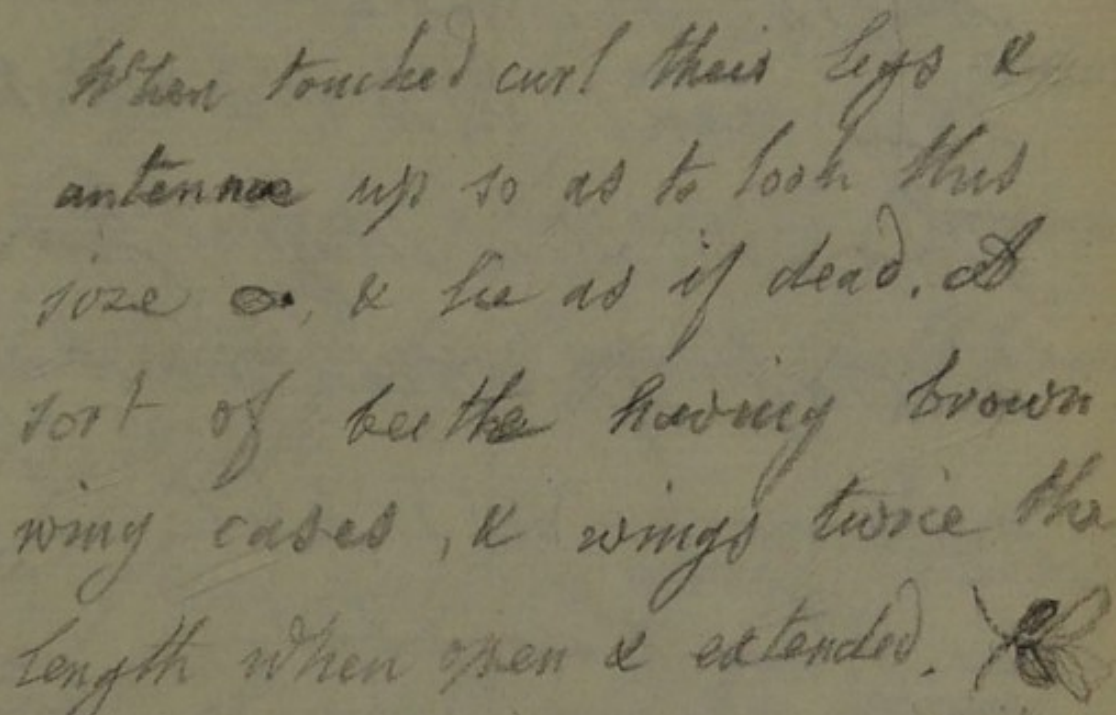 When touched curl their legs &
antennae up so as to look this
size , & lie as if dead. A
sort of beetle having brown
wing cases, & wings twice the
length when open & extended.